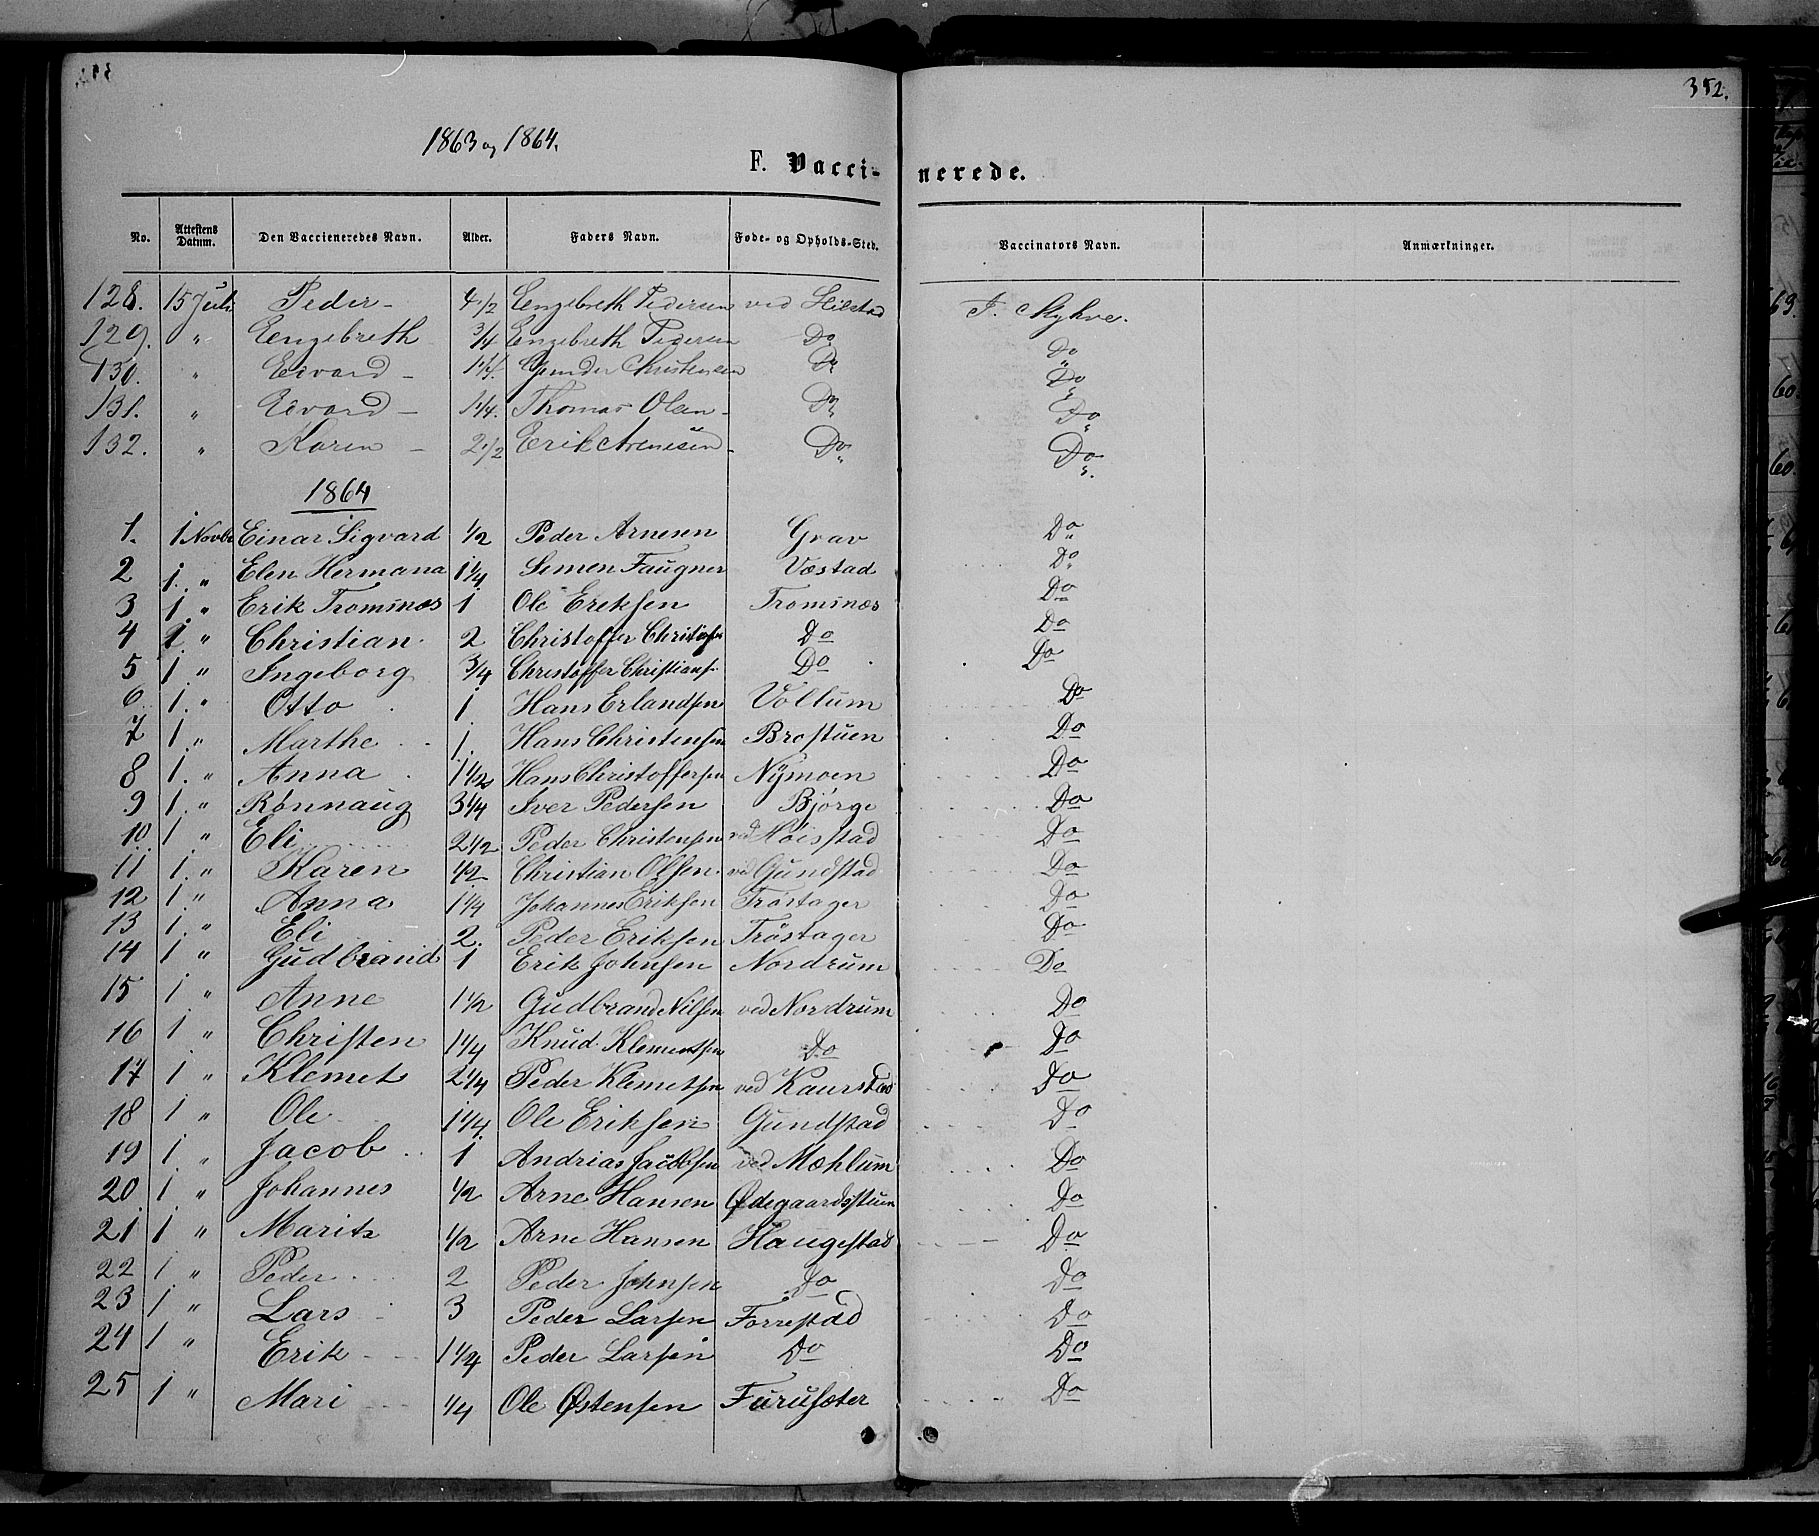 352.
1863 og 1864.
F. Vacci- nerede.
No. Attestens Datum. Den Vaccineredes Navn. Alder. Faders Navn. Føde- og Opholds-Sted. Vaccinators Navn. Anmærkninger.
128. 15 Juli Peder 4 1/2 Engebreth Pedersen ved J.
129. " Engebreth 3/4 Engebreth Pedersen Do Do
130. " Edvard Christensen Do Do
131. " Edvard 1 1/4. Thomas Olsen Do Do
132. " Karen 2 1/2 Erik Arnesen Do Do
1864
1. 1 Novbr Einar Sigvard 1/2 Peder Arnesen Grav Do
2 1. " Elen Hermana 1 1/4 Simen Faugner Væstad Do
3 1. " Erik Tromsnæs 1 Ole Eriksen Tromsnæs Do
4 1 " Christian 2 Christoffer Do Do
5 1 " Ingeborg 3/4 Christoffer Christians. Do Do
6 1. " Otto 1 Hans Erlandsen Vollum Do
7 1. " Marthe 1. Hans Christensen Brostuen Do
8 1. " Anna 1 1/2 Hans Christoffersen Nymoen Do
9 1. " Rønnaug 3 1/4 Iver Pedersen Bjørge Do
10. 1 " Eli 2 1/2 Peder Christensen ved Høistad Do
11 1. " Karen 1/2 Christian Olsen ved Gundstad Do
12 1 " Anna 1 1/4 Johannes Eriksen Trøstager Do
13 1. " Eli 2. Peder Eriksen Trøstager Do
14 1 " Gudbrand 1 Erik Johnsen Nordrum Do
15 1 " Anne 1 1/2 Gudbrand Nilsen ved Nordrum Do
16 1 " Christen 1 1/4 Knud Klemetsen Do Do
17 1 " Klemet 2 1/4 Peder Klemetsen ved Kaurstad Do
18 1 " Ole 1 1/4 Ole Eriksen Gundstad Do
19 1 " Jacob 1 Andrias Jacobsen ved Mæhlum Do
20 1 " Johannes 1/2 Arne Hansen Ødegaardsstuen Do
21 1 " Marit 1/2 Arne Hansen Haugestad Do
22 1 " Peder 2 Peder Johnsen Do Do
23 1 " Lars 3 Peder Larsen Forrestad Do
24 1 " Erik Peder Larsen Do Do
25 1 " Mari 1/4 Ole Østensen Furusæter Do